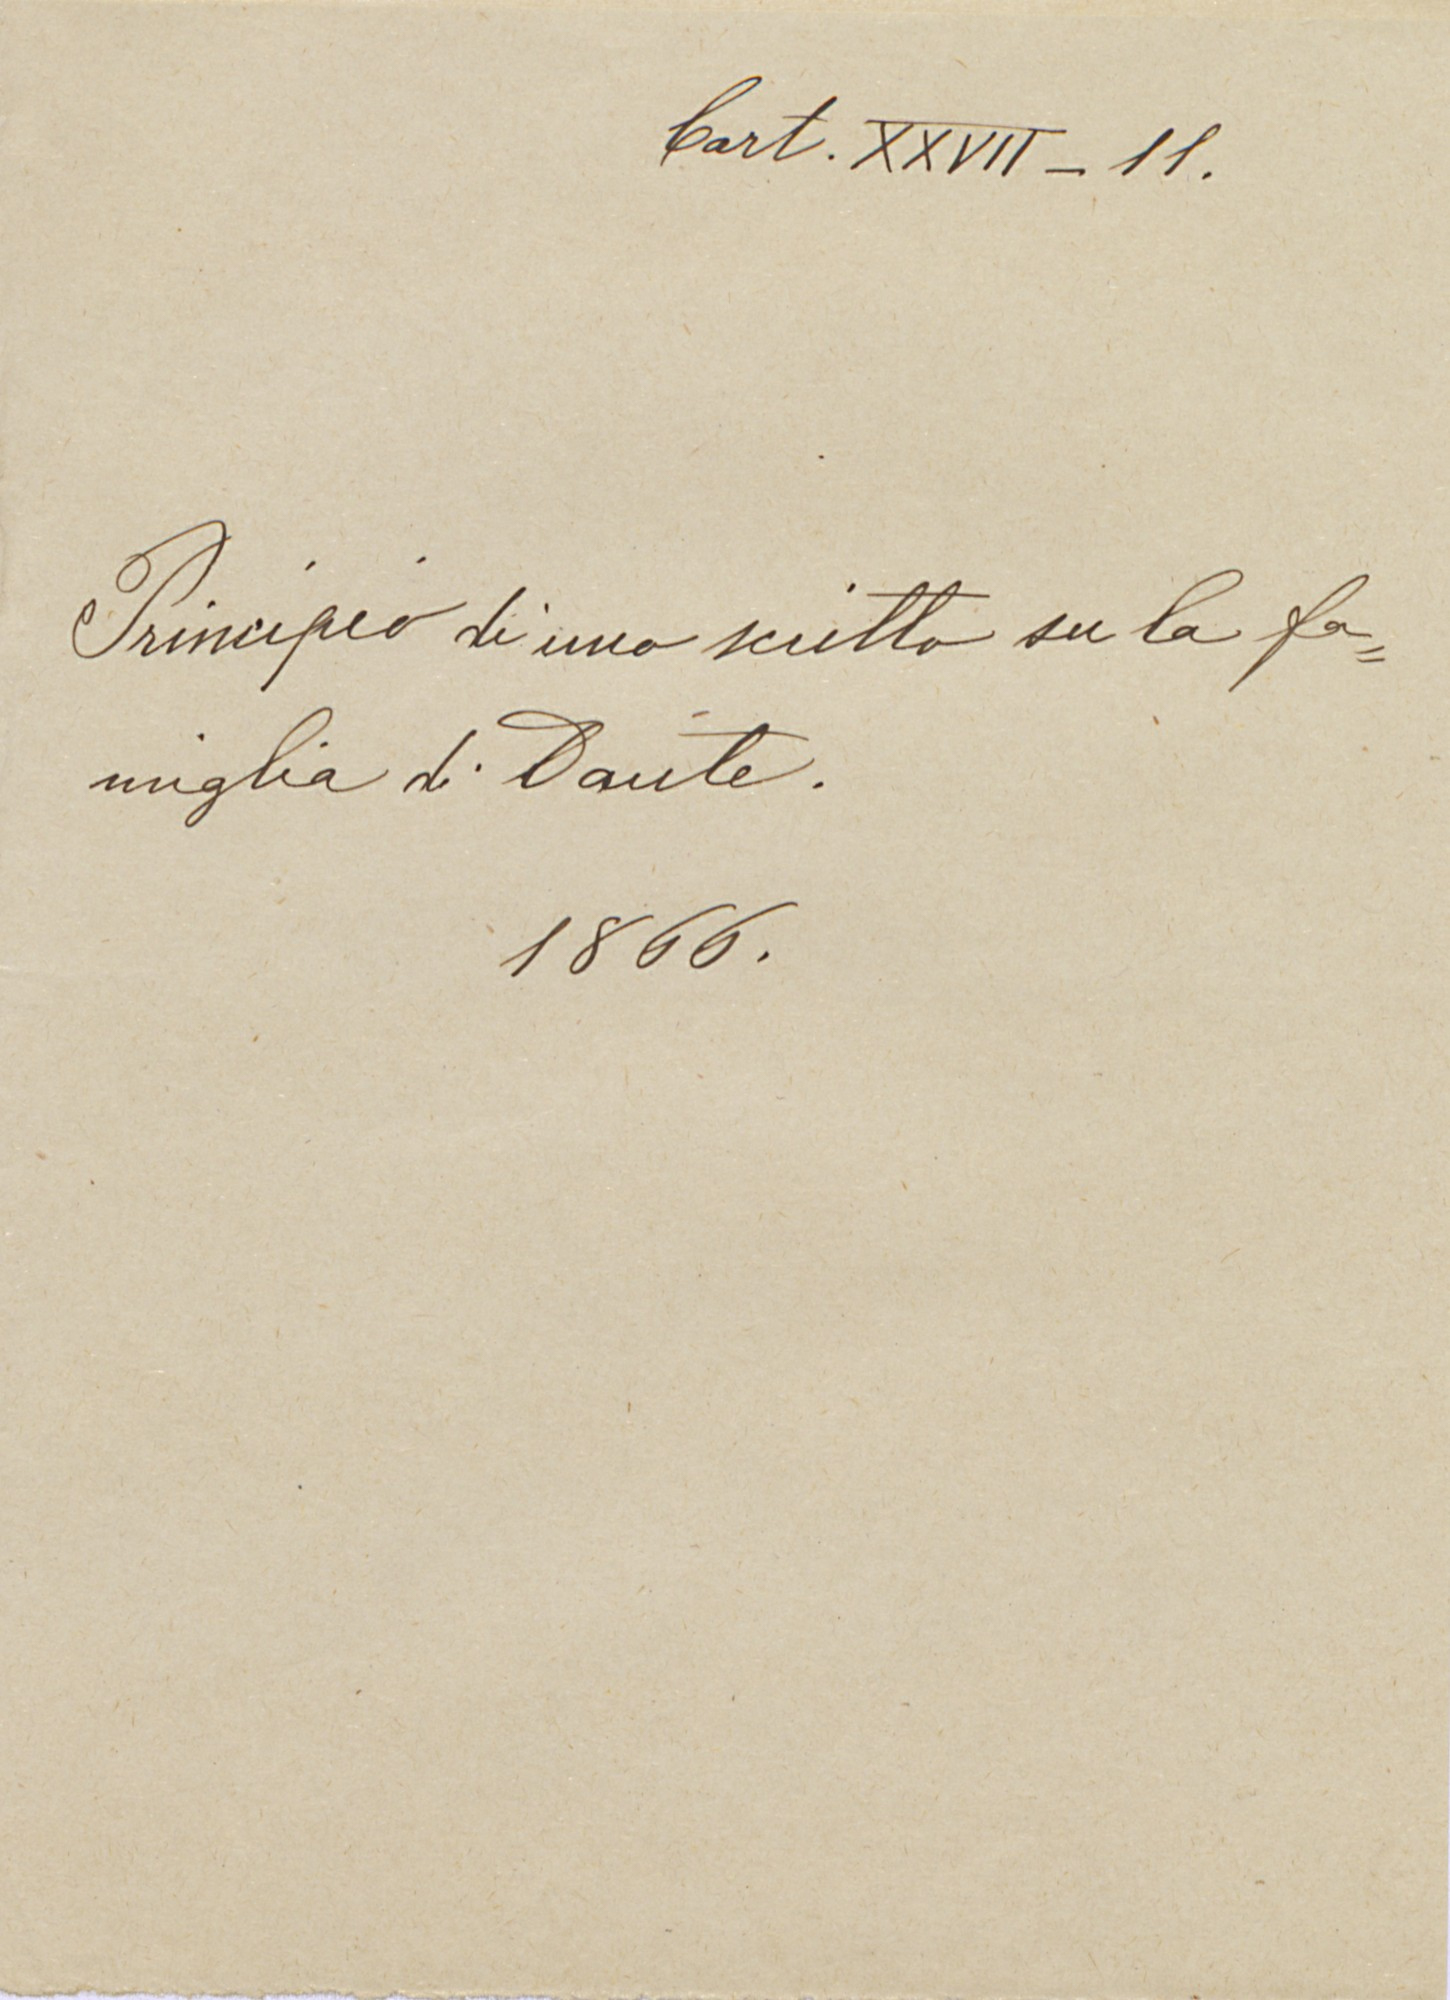 Cart. XXVII - 11.
Principio di uno scritto su la fa=
miglia di Dante.
1866.